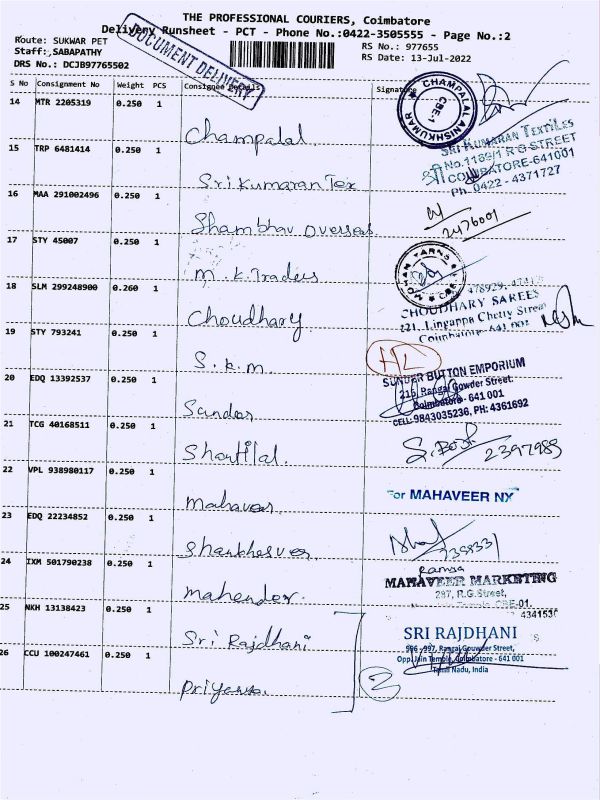 THE PROFESSIONAL COURIERS, Coimbatore
Delivery Runsheet - PCT - Phone No.:0422-3505555 - Page No.:2
Route: SUKWAR PET
RS No.: 977655
Staff:,SABAPATHY
RS Date: 13-Jul-2022
DRS No.: DCJB97765502
DOCUMENT DELIVERY
S No Consignment No Weight PCS Consignee Details Signature
14 MTR 2205319 0.250 1
Champalal.
CHAMPALAL ANISHKUMAR CBE-1
15 TRP 6481414 0.250 1
Sri Kumaran Tex
SRI KUMARAN TEXTILES
No.1189/1 R G STREET
COIMBATORE-641001
Ph: 0422 - 4371727
16 MAA 291002496 0.250 1
Shambhav Overseas.
2476001
17 STY 45007 0.250 1
M. K. Traders
MOHAN YARNS
18 SLM 299248900 0.260 1
Choudhary
478929,
CHOUDHARY SAREES
221, Lingappa Chetty Street
Coimbatore- 641 001
19 STY 793241 0.250 1
S. k. m.
20 EDQ 13392537 0.250 1
Sundar
SUNDER BUTTON EMPORIUM
215, Rangai Gowder Street.
Coimbatore - 641 001
CELL: 9843035236, PH: 4361692
21 TCG 40168511 0.250 1
Shantilal.
2397985
22 VPL 938980117 0.250 1
Mahaveer.
For MAHAVEER NX
23 EDQ 22234852 0.250 1
Shankheswer.
24 IXM 501790238 0.250 1
Mahender.
Ramya
MAHAVEER MARKETING
297, R.G.Street,
CBE-01.
25 NKH 13138423 0.250 1
Sri Rajdhani
SRI RAJDHANI
996 - 997, Rangai Gowder Street,
Opp. Jain Temple, Coimbatore - 641 001
Tamil Nadu, India
26 CCU 100247461 0.250 1
Priyesh.
2